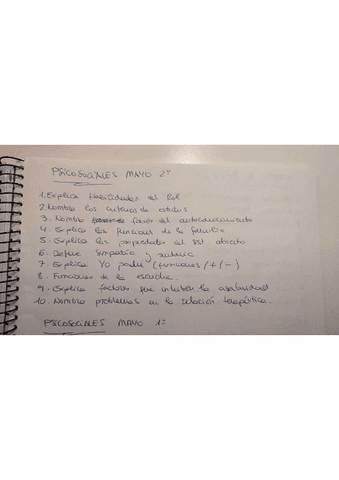 PSICOSOCIALES MAYO 2º
1. Explica Habilidades del Rol
2. Nombra los criterios de
3. Nombra fases del autoconocimiento
4. Explica las funciones de la familia
5. Explica las propiedades del SST abierto
6. Define Simpatía y
7. Explica Yo padre (funciones /+/-)
8. Funciones de la escucha.
9. Explica factores que influyen la asertividad
10. Nombra problemas en la relación terapéutica.
PSICOSOCIALES MAYO 1º